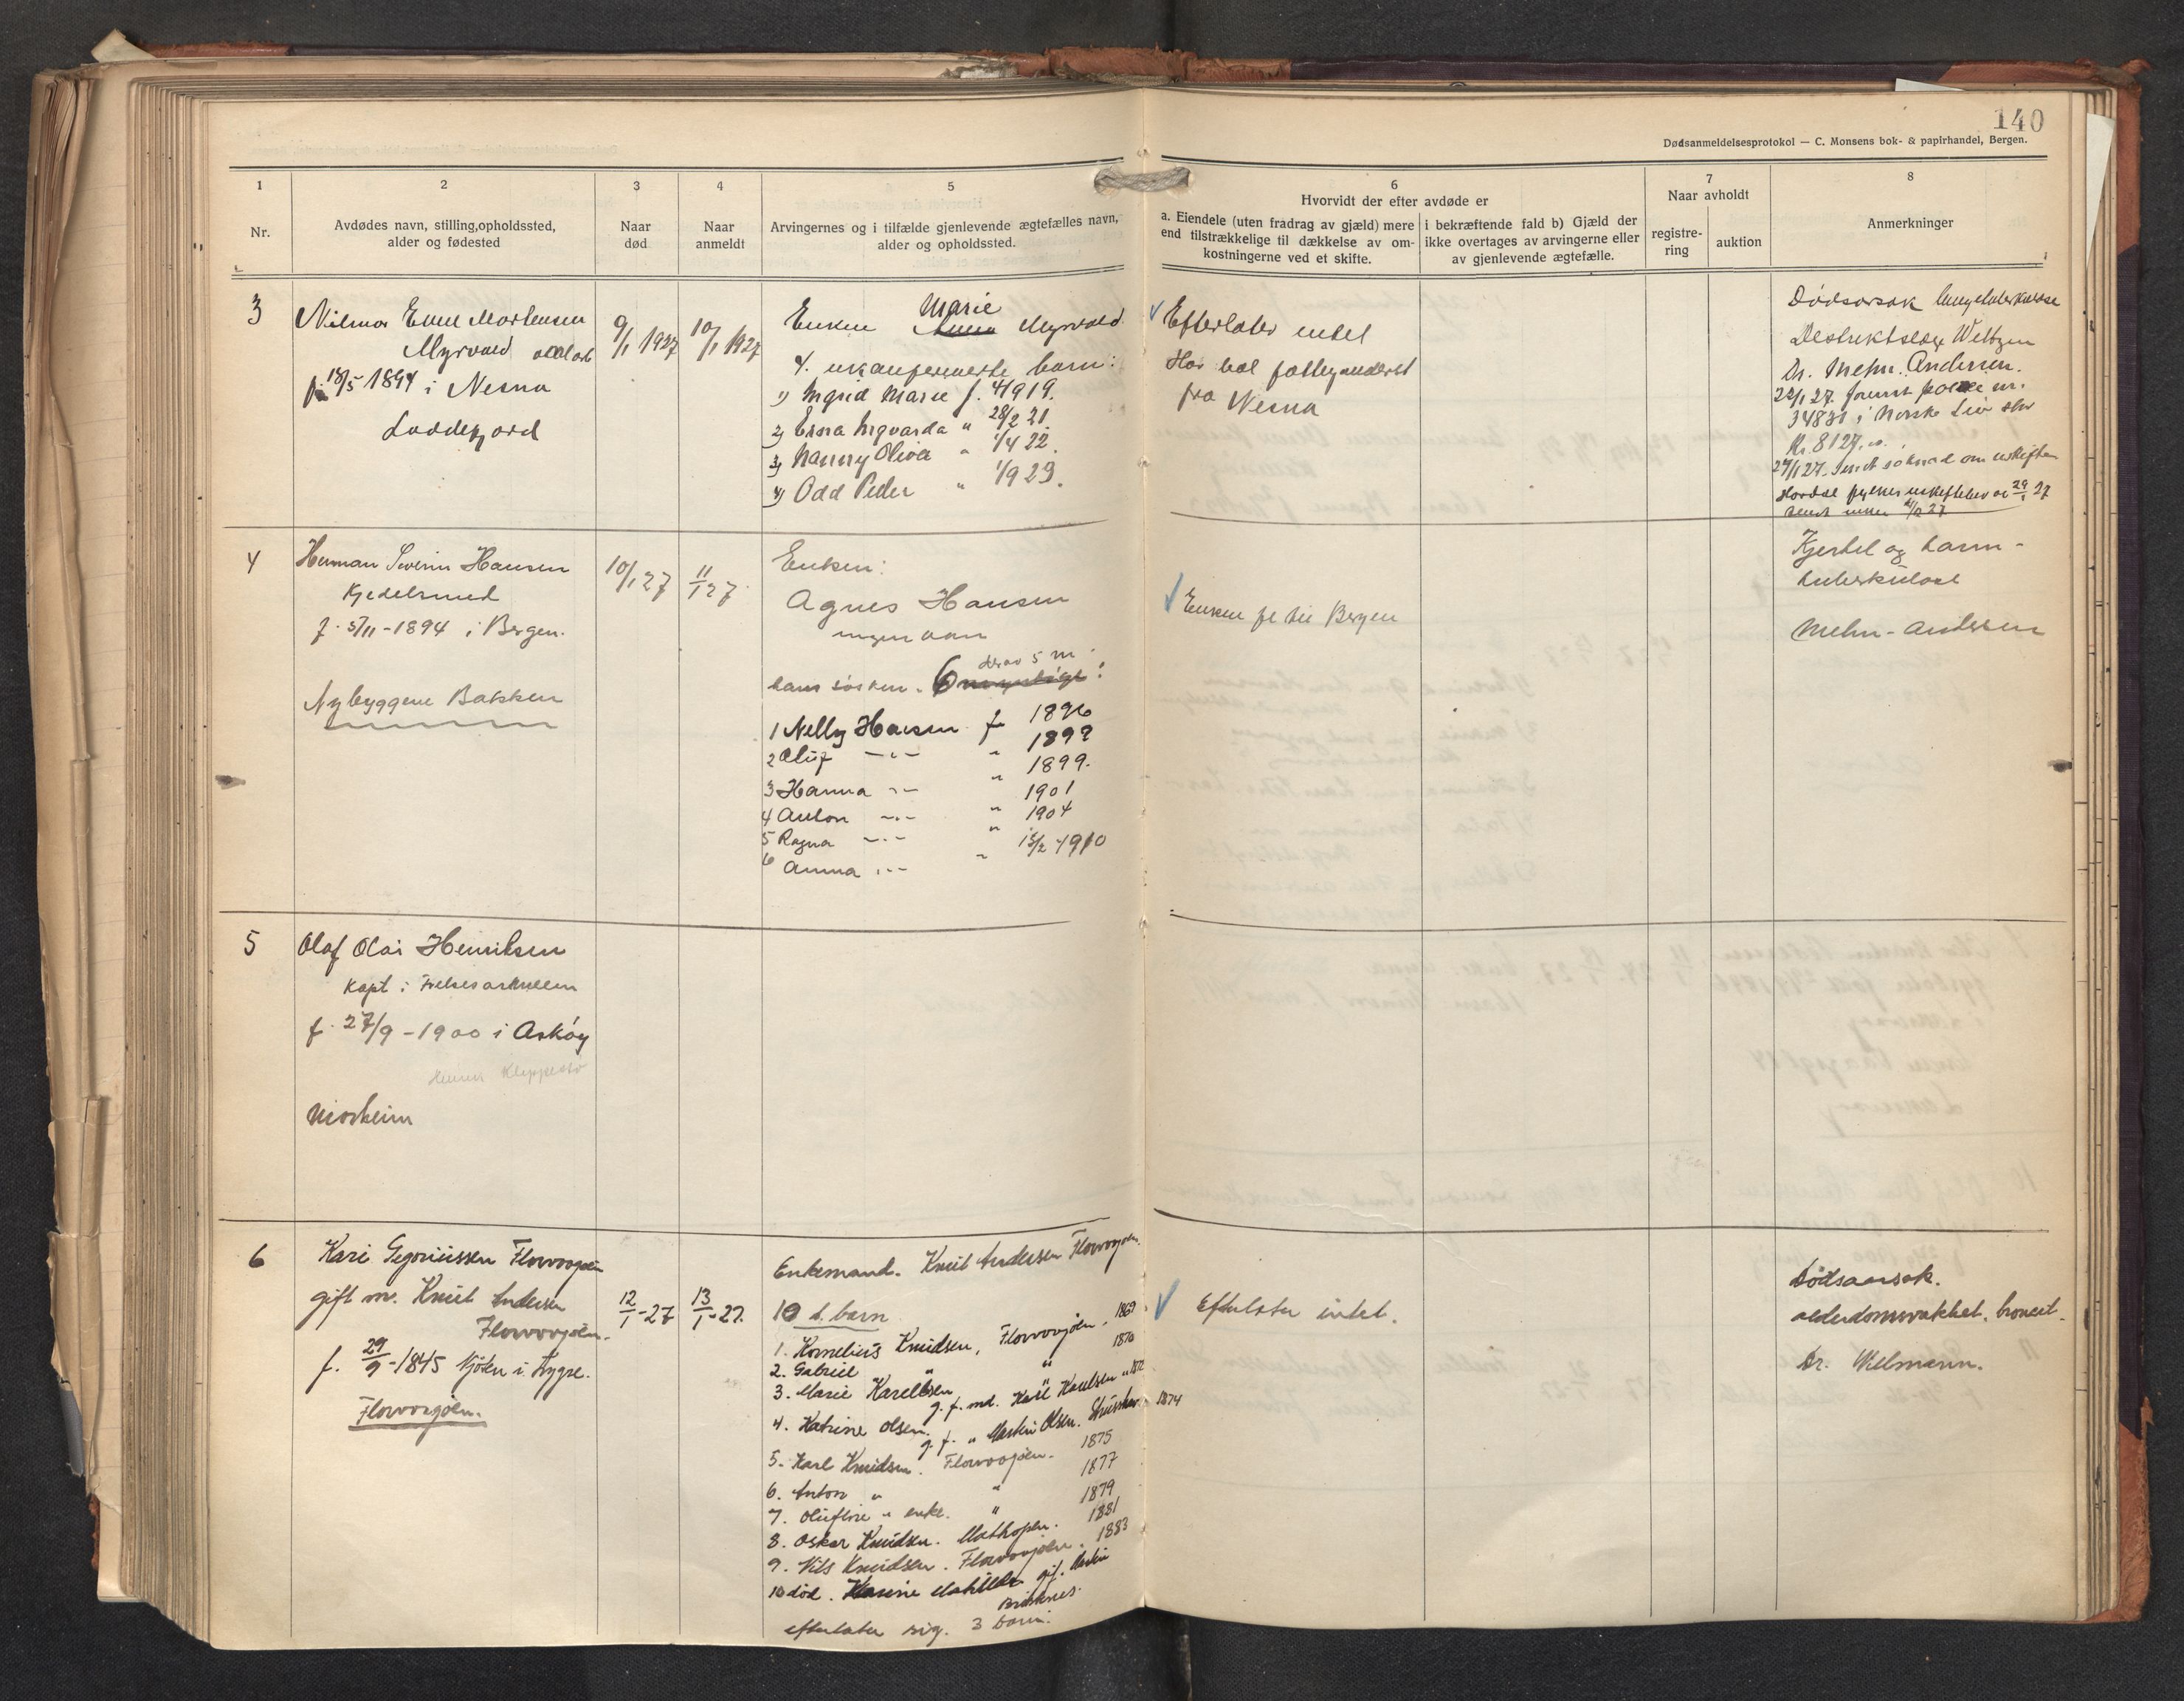 140
Dødsanmeldelsesprotokol — C. Monsens bok- & papirhandel, Bergen.
1
Nr.
2
Avdødes navn, stilling, opholdssted,
alder og fødested
3
Naar
død
4
Naar
anmeldt
5
Arvingernes og i tilfælde gjenlevende ægtefælles navn,
alder og opholdssted.
6
Hvorvidt der efter avdøde er
a. Eiendele (uten fradrag av gjæld) mere
end tilstrækkelige til dækkelse av om-
kostningerne ved et skifte.
i bekræftende fald b) Gjæld der
ikke overtages av arvingerne eller
av gjenlevende ægtefælle.
7
Naar avholdt
registre-
ring
auktion
8
Anmerkninger
3
Nilmar Emil Mortensen
Myrvold
18/5 1894 i Nesna
Loddefjord
9/1 1927
10/1 1927
Marie
Enken Myrvold
4. barn:
1) Ingrid Marie f. 4/1919.
2) Erna Ingvarda " 28/2 21.
3) Nanny Oliva " 1/4 22.
4) Odd Peder " 1/9 23.
Efterlater intet
Har
fra Nesna
Dødsarsak
Dr. Mehn. Andersen.
22/1 27.
34831 i Norske Liv
Kr. 8127.
27/1 27. Sendt søknad om
29/1 27
4
Herman Severin Hansen
Kjedelsmed
f. 5/11-1894 i Bergen.
Nybyggene Bakken
10/1 27
11/1 27
Enken:
Agnes Hansen
ingen barn
derav 5 m
hans søsken. 6
1 Nelly Hansen f. 1896
2 Oluf -"- " 1899
3 Hanna -"- " 1899.
4 Anton -"- " 1901
5 Ragna -"- " 1904
6 Anna -"- " 15/2 1910
Enken til Bergen
Kjertel og tarm-
tuberkulose
Mehn-Andersen
5
Olaf Olai Henriksen
Kapt. i Frelsesarmeen
f. 27/9-1900 i Askøy
Kleppestø
Mosheim
6
Kari Gegoriussen Florvaagøen
gift m. Knut Andersen
Florvaagøen.
f. 29/9-1845 i Bygre.
Florvaagøen.
12/1-27
13/1-27.
Enkemand. Knut Andersen Florvaagøen.
10 s. barn
1. Kornelius Knudsen, Florvaagøen. 1869
2. Gabriel " " 1870
3. Marie Karelsen
g. f. md. Karl Karelsen "
4. Katrine Olsen.
g. f. " Martin Olsen. 1874
5. Karl Knudsen. Florvaagøen. 1875
6. Anton " " 1877
7. Olufine " enke. " 1879
8. Oskar Knudsen. Mathopen. 1881
9. Nils Knudsen. Florvaagøen. 1883
10 død. Karine Mathilde gif. Martin
efterlater sig. 3 barn.
Efterlater intet.
Dødsaarsak.
alderdomsvakhet. broncit.
Dr. Wilmann.